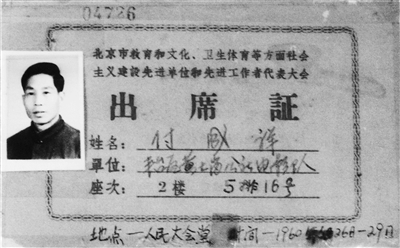 04726
北京市教育和文化、卫生体育等方面社会
主义建設先进单位和先进工作者代表大会
出席証
姓名：付 祥
單位：
座次：2楼 5排16号
地点—人民大会堂 时间—1960 26日—29日